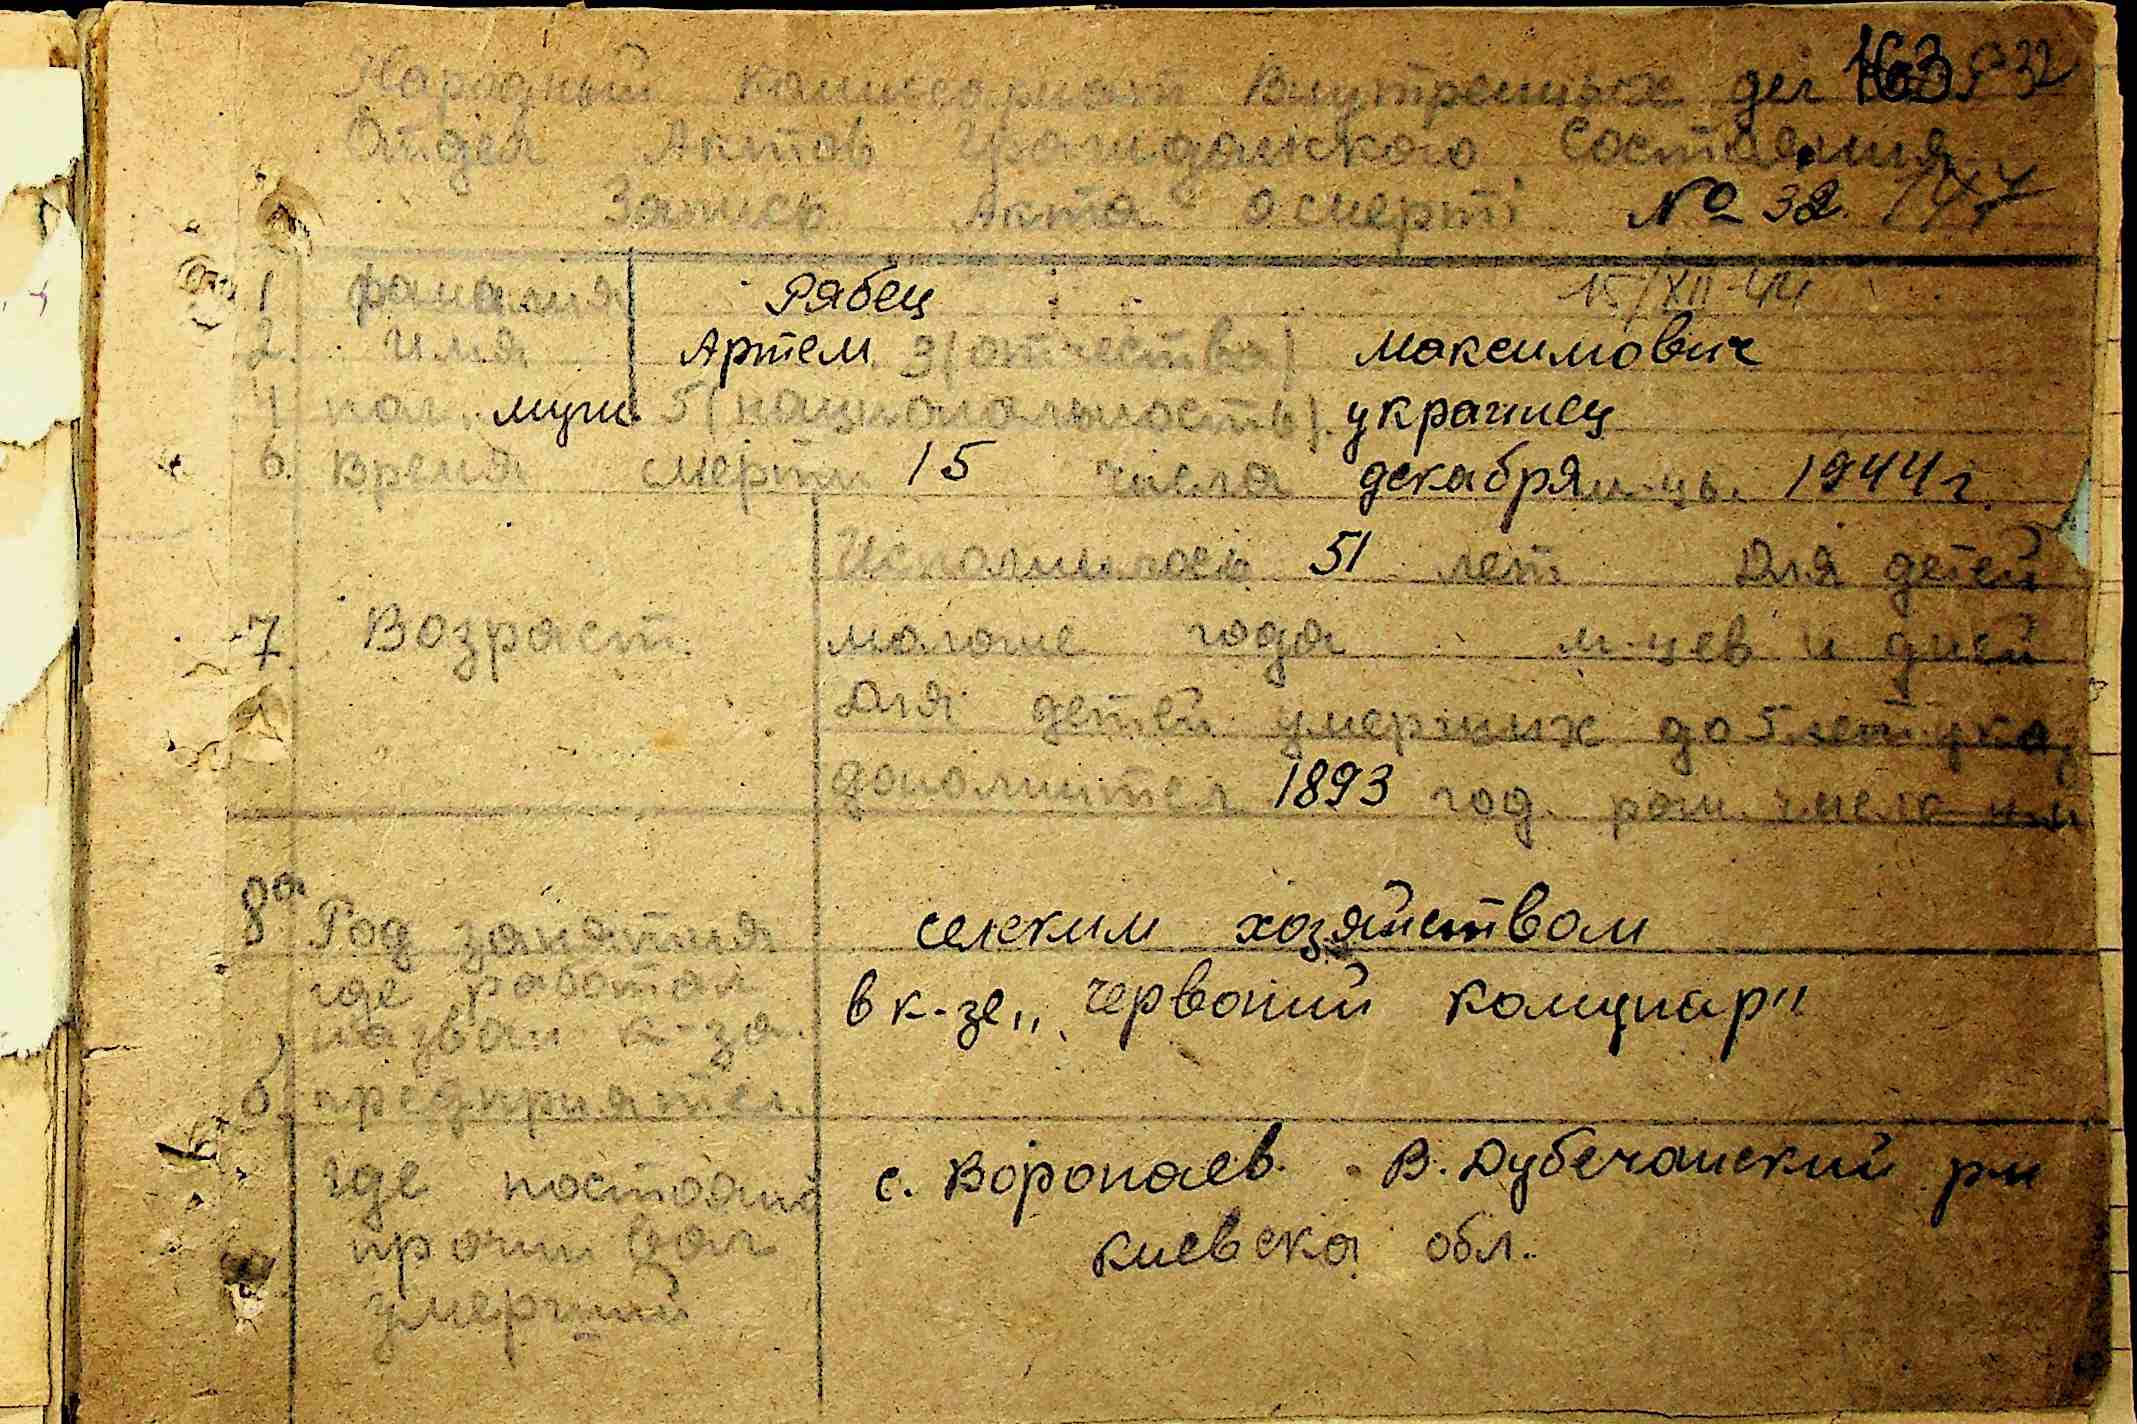 Народный Комиссариат Внутренних дел 163
Отдел Актов Гражданского Состаяния
Запись Акта о смерті № 32.
1 фамалия Рябец 15/XII-44
2. имя Артем 3 (отчества) Максимович
4 пол. муж. 5 (национальность) украинец
6. Время смерти 15 числа декабря м-ца. 1944 г.
Исполнилось 51 лет Для детей
7. Возраст. моложе года м-цев и дней
Для детей умерших до 5 лет ука
дополнител. 1893 год. рож.
8а Род занятия селским хозяйством
где работал
назван к-за. в к-зе „Червоний комунар"
б. предприятел.
где постоянно с. Воропаев. В. Дубечанский р-н
проживал Киевска обл.
умерший